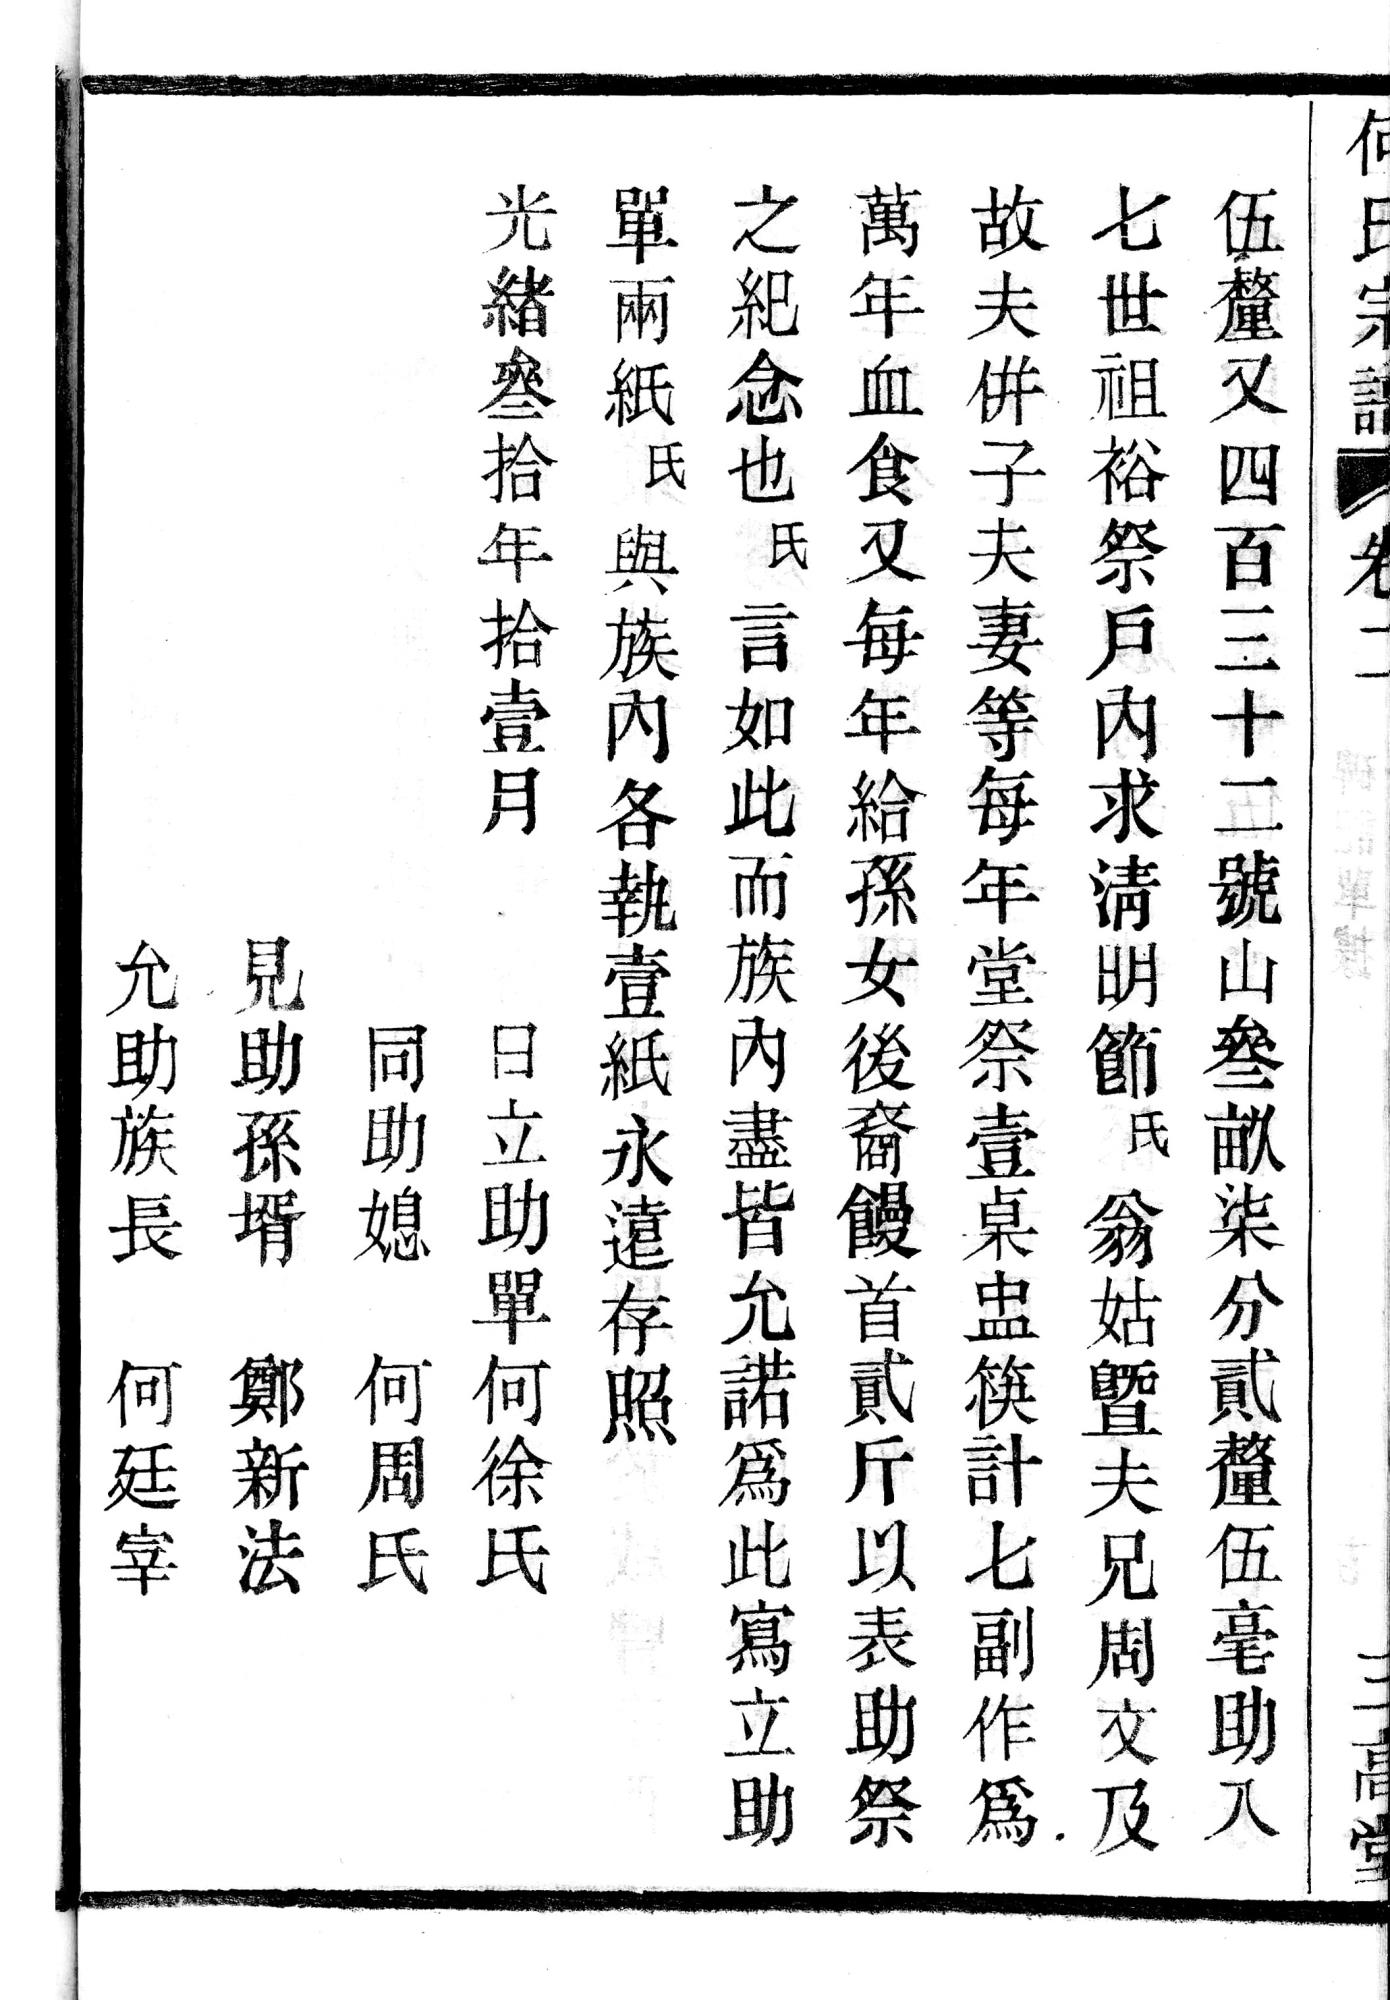 何氏宗譜 卷二 三高堂
伍釐又四百三十二號山叄畝柒分貳釐伍毫助入
七世祖裕祭戶內求淸明節氏翁姑曁夫兄周文及
故夫併子夫妻等每年堂祭壹桌盅筷計七副作爲
萬年血食又每年給孫女後裔饅首貳斤以表助祭
之紀念也氏言如此而族內盡皆允諾爲此寫立助
單兩紙氏與族內各執壹紙永遠存照
光緒叄拾年拾壹月 日立助單何徐氏
同助媳 何周氏
見助孫壻 鄭新法
允助族長 何廷宰